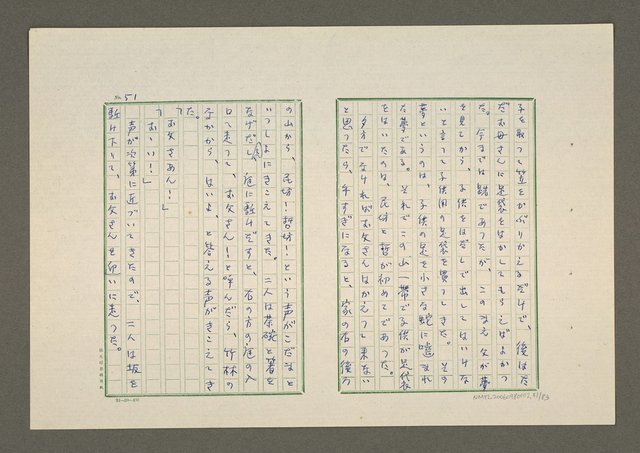 子を取って笠をかぶりかえるだけで、後はた
だお母さんに足袋をはかしてもらえばよかつ
た。今までは跣であつたが、このまえ父が夢
を見てから、子供をはだしで出してはいけな
いと言って子供用の足袋を買つてきた。その
夢というのは、子供の足を小さな蛇に噛まれ
た夢である。それでこの山一帯で子供が足袋
をはいたのは、民坊と哲が初めてであつた。
夕方でなければお父さんはかえつて来ない
と思つたら、午すぎになると、家の右の後方
NMTL20060980102_51/83
No. 51
の山から、民坊！哲坊！という声がこだまと
いつしよにきこえてきた。二人は茶碗と箸を
なげだし、庭に駈けだすと、右の方の庭の入
口へ走つて、お父さん！と呼んだら、竹林の
なかから、はいよ、と答える声がきこえてき
た。
「お父さあん！」
「おーい！」
声が次第に近づいてきたので、二人は坂を
駈け下りて、お父さんを迎いに走つた。